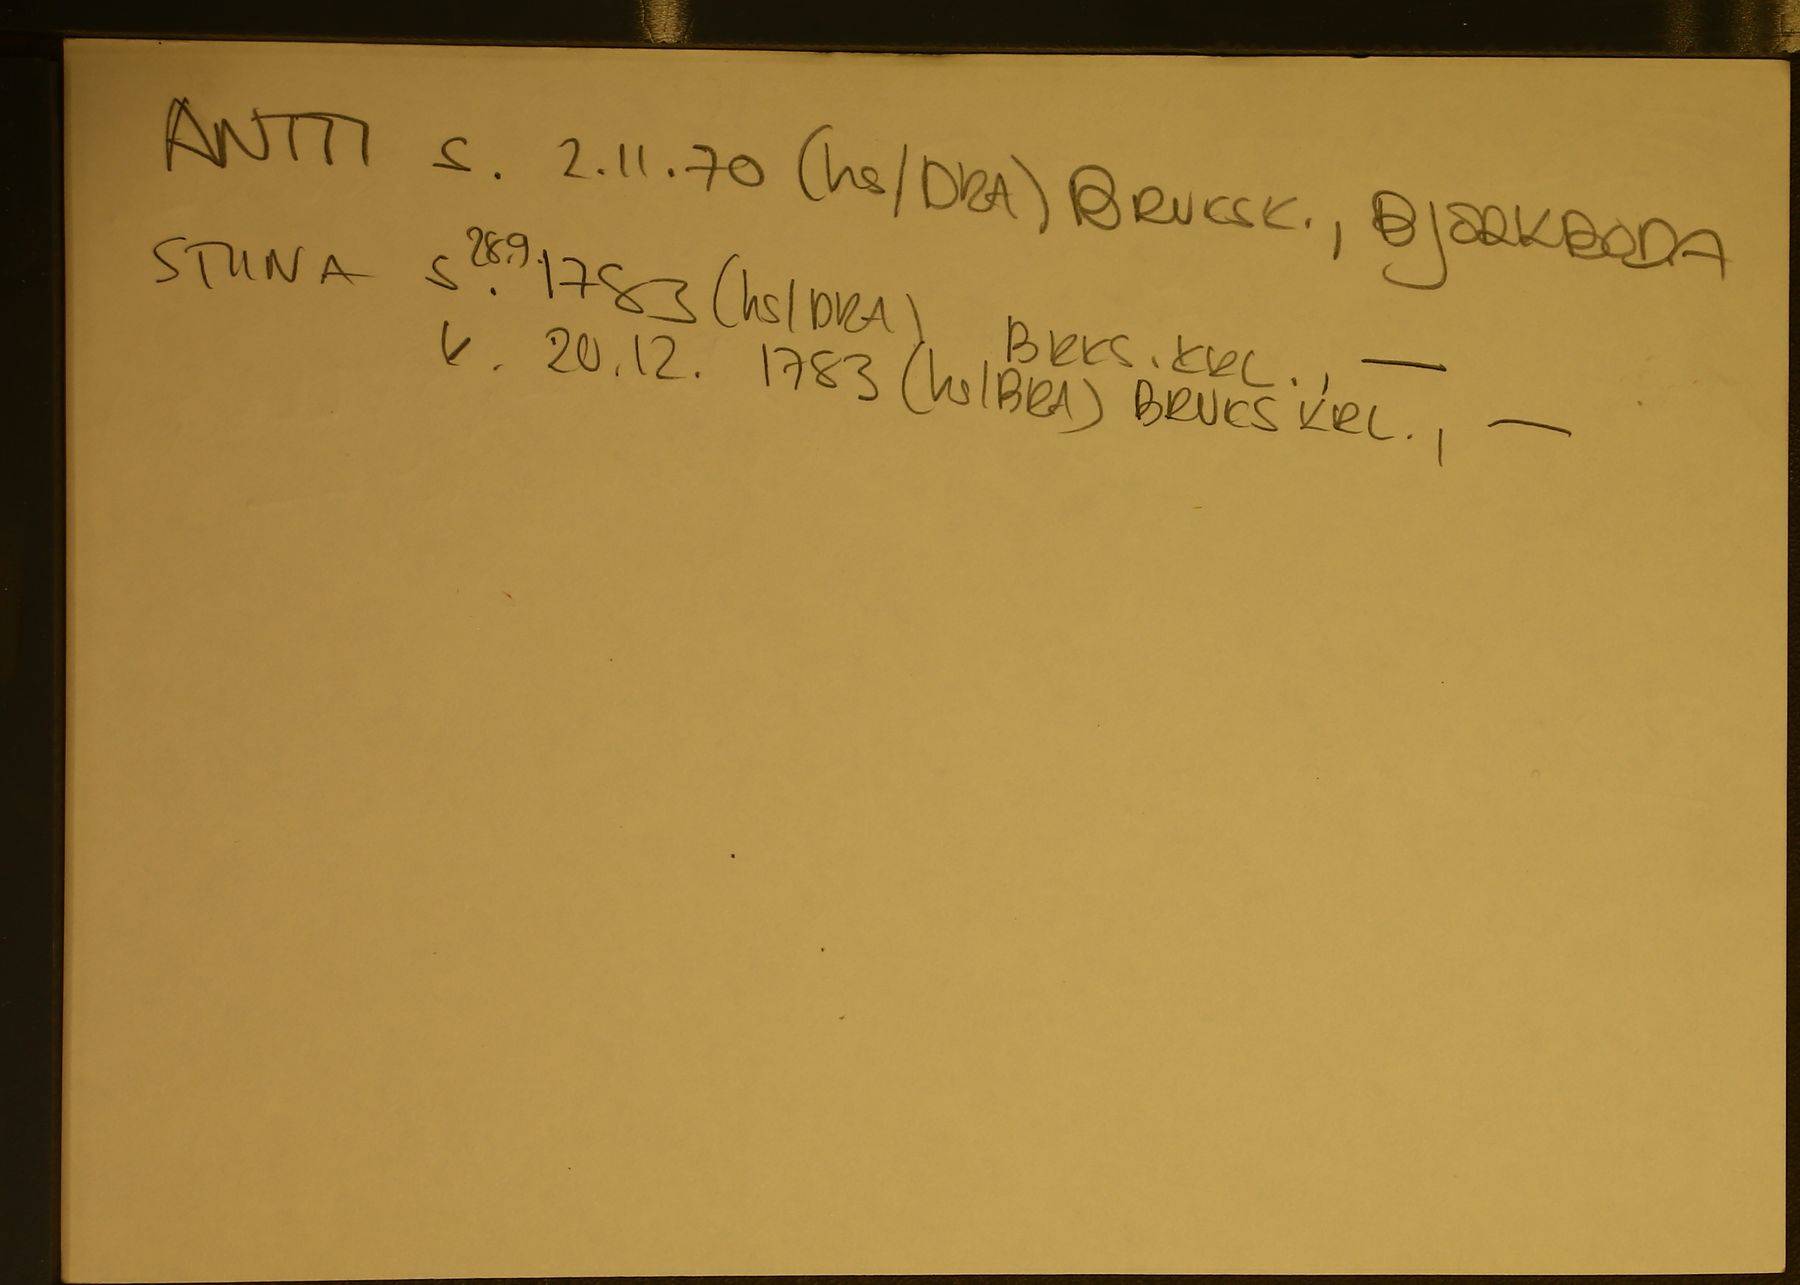 ANTTI s. 2.11.70 (hs/DRA) BRUKSK., BJÖRKBODA
STIINA s. 28.9. 1783 (hs/DRA) BRKS. KRL., —
k. 20.12. 1783 (hs/BRA) BRUKS KRL., —